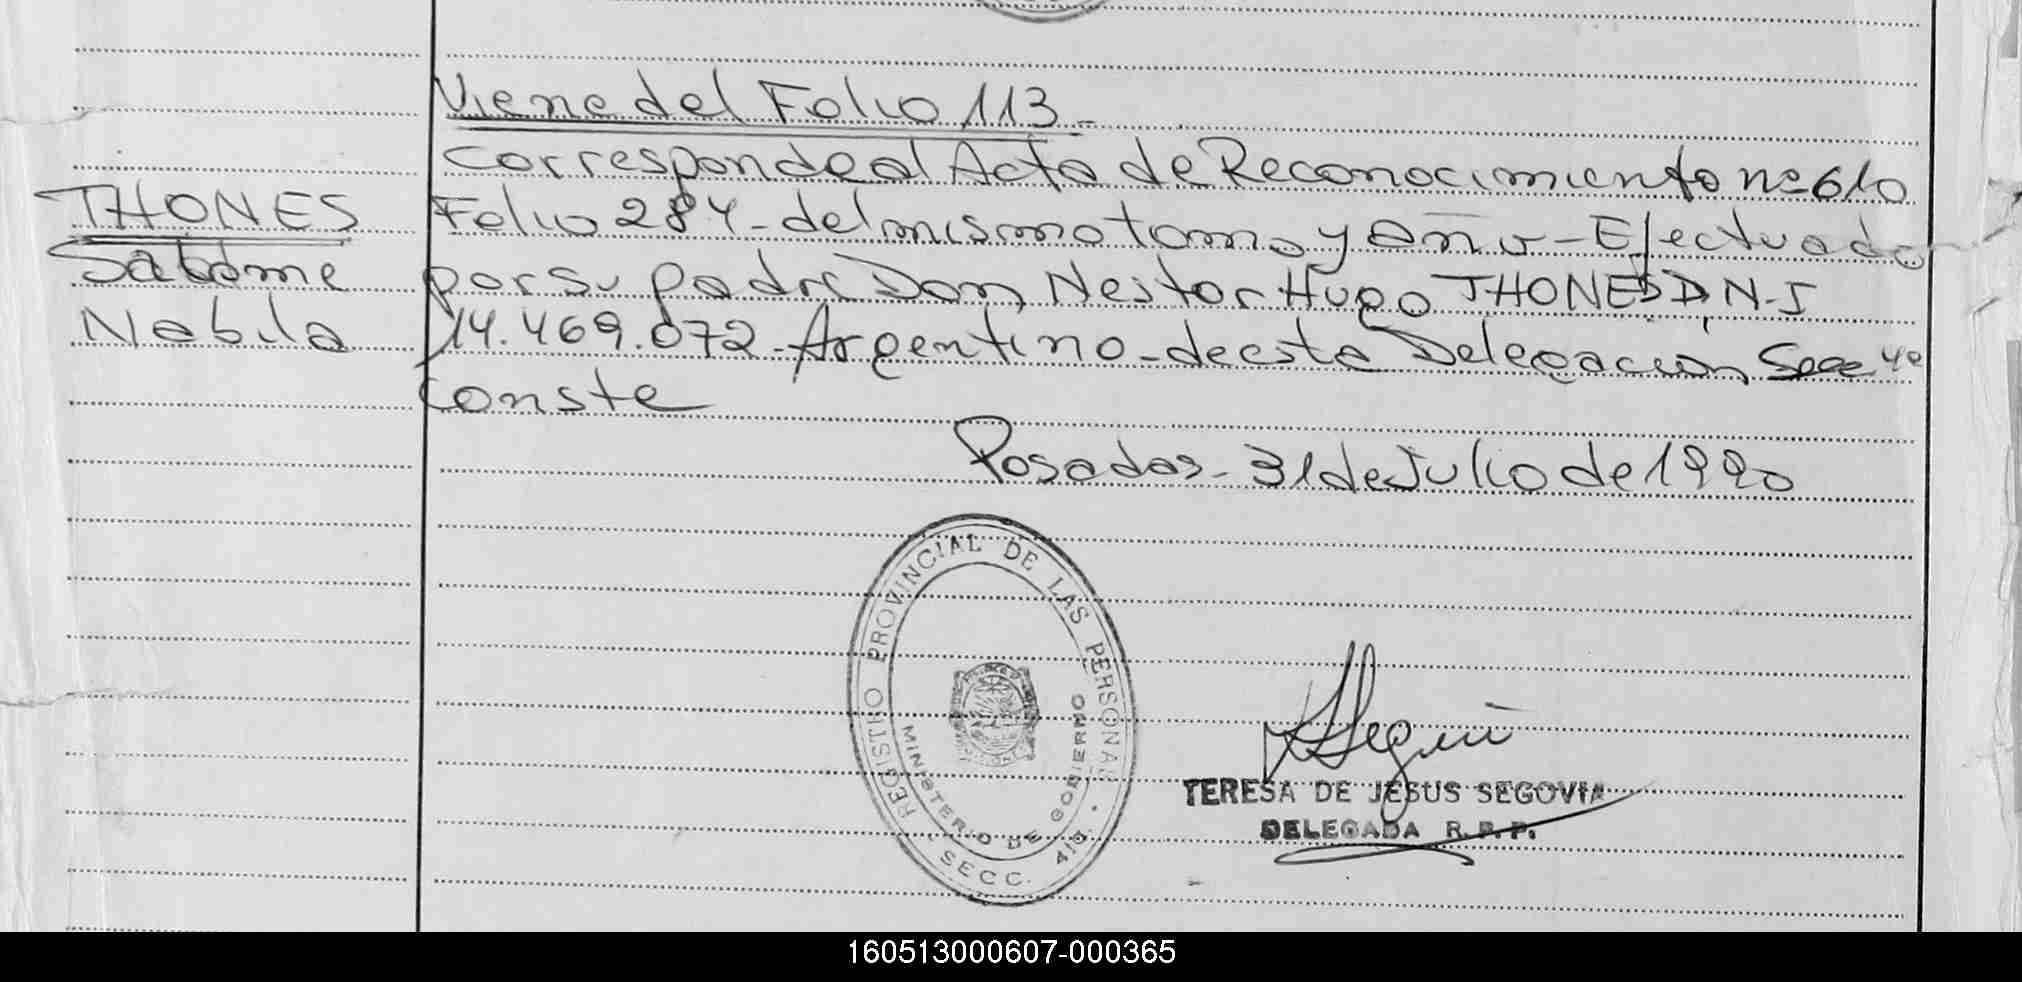 Viene del Folio 113-
Corresponde al Acta de Reconocimiento nº 610
THONES
Folio 284- del mismo tomo y año - Efectuado
Salome
por su padre Don Nestor Hugo THONES D.N.I
Nabila
14.469.072- Argentino- de esta Delegación Secc 4º
conste
Posadas- 31 de Julio de 1990
REGISTRO PROVINCIAL DE LAS PERSONAS
MINISTERIO DE GOBIERNO
SECC. 4ta
TERESA DE JESUS SEGOVIA
DELEGADA R.P.P.
160513000607-000365